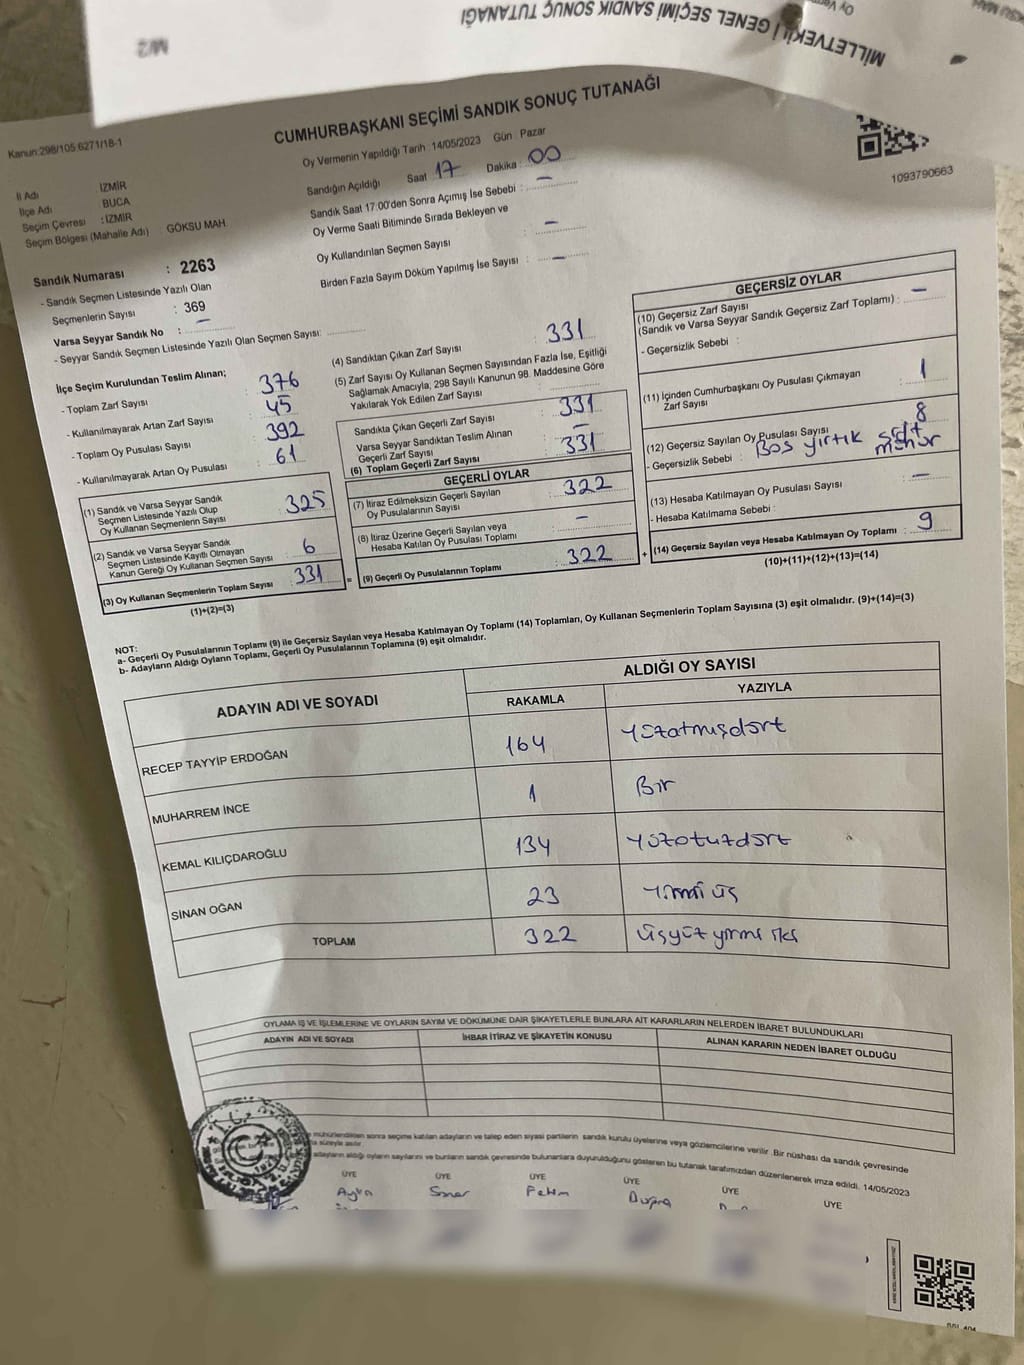 MİLLETVEKİLİ GENEL SEÇİMİ SANDIK SONUÇ TUTANAĞI
M/2
Kanun:298/105.6271/18-1
CUMHURBAŞKANI SEÇİMİ SANDIK SONUÇ TUTANAĞI
Oy Vermenin Yapıldığı Tarih :14/05/2023 Gün Pazar
1093790663
İl Adı İZMİR
İlçe Adı BUCA
Seçim Çevresi : İZMİR
Seçim Bölgesi (Mahalle Adı) GÖKSU MAH.
Sandığın Açıldığı Saat 17 Dakika : 00
Sandık Saat 17:00'den Sonra Açılmış İse Sebebi : —
Oy Verme Saati Bitiminde Sırada Bekleyen ve
Oy Kullandırılan Seçmen Sayısı : —
Birden Fazla Sayım Döküm Yapılmış İse Sayısı : —
Sandık Numarası : 2263
- Sandık Seçmen Listesinde Yazılı Olan
Seçmenlerin Sayısı : 369
Varsa Seyyar Sandık No : —
- Seyyar Sandık Seçmen Listesinde Yazılı Olan Seçmen Sayısı:
İlçe Seçim Kurulundan Teslim Alınan;
- Toplam Zarf Sayısı : 376
- Kullanılmayarak Artan Zarf Sayısı : 45
- Toplam Oy Pusulası Sayısı : 392
- Kullanılmayarak Artan Oy Pusulası : 61
(1) Sandık ve Varsa Seyyar Sandık
Seçmen Listesinde Yazılı Olup
Oy Kullanan Seçmenlerin Sayısı : 325
(2) Sandık ve Varsa Seyyar Sandık
Seçmen Listesinde Kayıtlı Olmayan
Kanun Gereği Oy Kullanan Seçmen Sayısı : 6
(3) Oy Kullanan Seçmenlerin Toplam Sayısı : 331
(1)+(2)=(3)
(4) Sandıktan Çıkan Zarf Sayısı : 331
(5) Zarf Sayısı Oy Kullanan Seçmen Sayısından Fazla İse, Eşitliği
Sağlamak Amacıyla; 298 Sayılı Kanunun 98. Maddesine Göre
Yakılarak Yok Edilen Zarf Sayısı :
Sandıkta Çıkan Geçerli Zarf Sayısı : 331
Varsa Seyyar Sandıktan Teslim Alınan
Geçerli Zarf Sayısı : —
(6) Toplam Geçerli Zarf Sayısı : 331
GEÇERLİ OYLAR
(7) İtiraz Edilmeksizin Geçerli Sayılan
Oy Pusulalarının Sayısı : 322
(8) İtiraz Üzerine Geçerli Sayılan veya
Hesaba Katılan Oy Pusulası Toplamı : —
= (9) Geçerli Oy Pusulalarının Toplamı : 322
GEÇERSİZ OYLAR
(10) Geçersiz Zarf Sayısı
(Sandık ve Varsa Seyyar Sandık Geçersiz Zarf Toplamı) : —
- Geçersizlik Sebebi :
(11) İçinden Cumhurbaşkanı Oy Pusulası Çıkmayan
Zarf Sayısı : 1
(12) Geçersiz Sayılan Oy Pusulası Sayısı : 8
- Geçersizlik Sebebi : Boş yırtık
(13) Hesaba Katılmayan Oy Pusulası Sayısı : —
- Hesaba Katılmama Sebebi :
+ (14) Geçersiz Sayılan veya Hesaba Katılmayan Oy Toplamı : 9
(10)+(11)+(12)+(13)=(14)
NOT:
a- Geçerli Oy Pusulalarının Toplamı (9) ile Geçersiz Sayılan veya Hesaba Katılmayan Oy Toplamı (14) Toplamları, Oy Kullanan Seçmenlerin Toplam Sayısına (3) eşit olmalıdır. (9)+(14)=(3)
b- Adayların Aldığı Oyların Toplamı, Geçerli Oy Pusulalarının Toplamına (9) eşit olmalıdır.
ADAYIN ADI VE SOYADI ALDIĞI OY SAYISI
RAKAMLA YAZIYLA
RECEP TAYYİP ERDOĞAN 164 Yüzatmışdört
MUHARREM İNCE 1 Bir
KEMAL KILIÇDAROĞLU 134 Yüzotuzdört
SİNAN OĞAN 23 Yirmi üç
TOPLAM 322 üçyüz yirmi iki
OYLAMA İŞ VE İŞLEMLERİNE VE OYLARIN SAYIM VE DÖKÜMÜNE DAİR ŞİKAYETLERLE BUNLARA AİT KARARLARIN NELERDEN İBARET BULUNDUKLARI
ADAYIN ADI VE SOYADI İHBAR İTİRAZ VE ŞİKAYETİN KONUSU ALINAN KARARIN NEDEN İBARET OLDUĞU
mühürlendikten sonra seçime katılan adayların ve talep eden siyasi partilerin sandık kurulu üyelerine veya gözlemcilerine verilir .Bir nüshası da sandık çevresinde
süreyle asılır.
adayların aldığı oyların sayılarını ve bunların sandık çevresinde bulunanlara duyurulduğunu gösteren bu tutanak tarafımızdan düzenlenerek imza edildi. 14/05/2023
ÜYE ÜYE ÜYE ÜYE ÜYE ÜYE